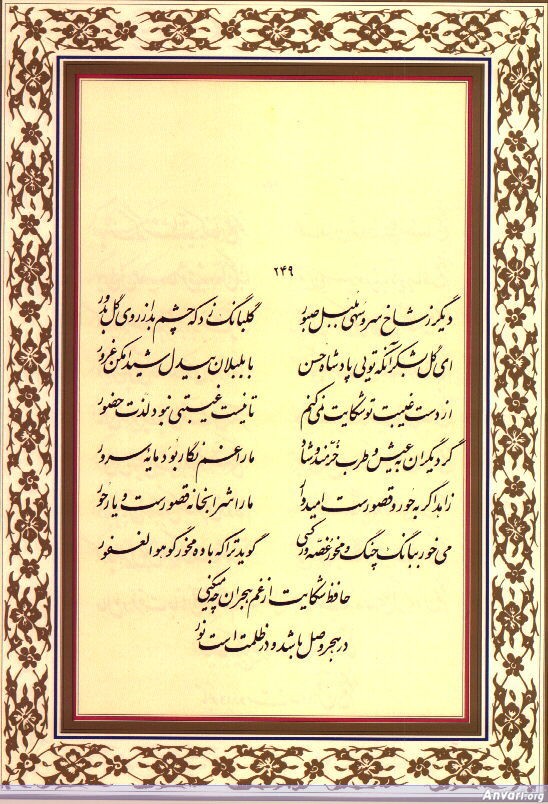 ۲۴۹
دیگر ز شاخ سرو سهی بلبل صبور گلبانگ زد که چشم بد از روی گل بدور
ای گل بشکر آنکه تویی پادشاه حسن با بلبلان بیدل شیدا مکن غرور
از دست غیبت تو شکایت نمی‌کنم تا نیست غیبتی نبود لذت حضور
گر دیگران به عیش و طرب خرمند و شاد ما را غم نگار بود مایه سرور
زاهد اگر به حور و قصورست امیدوار ما را شرابخانه قصورست و یار حور
می خور ببانگ چنگ و مخور غصه ور کسی گوید ترا که باده مخور گو هو الغفور
حافظ شکایت از غم هجران چه میکنی
در هجر وصل باشد و در ظلمت است نور
Anvari.org